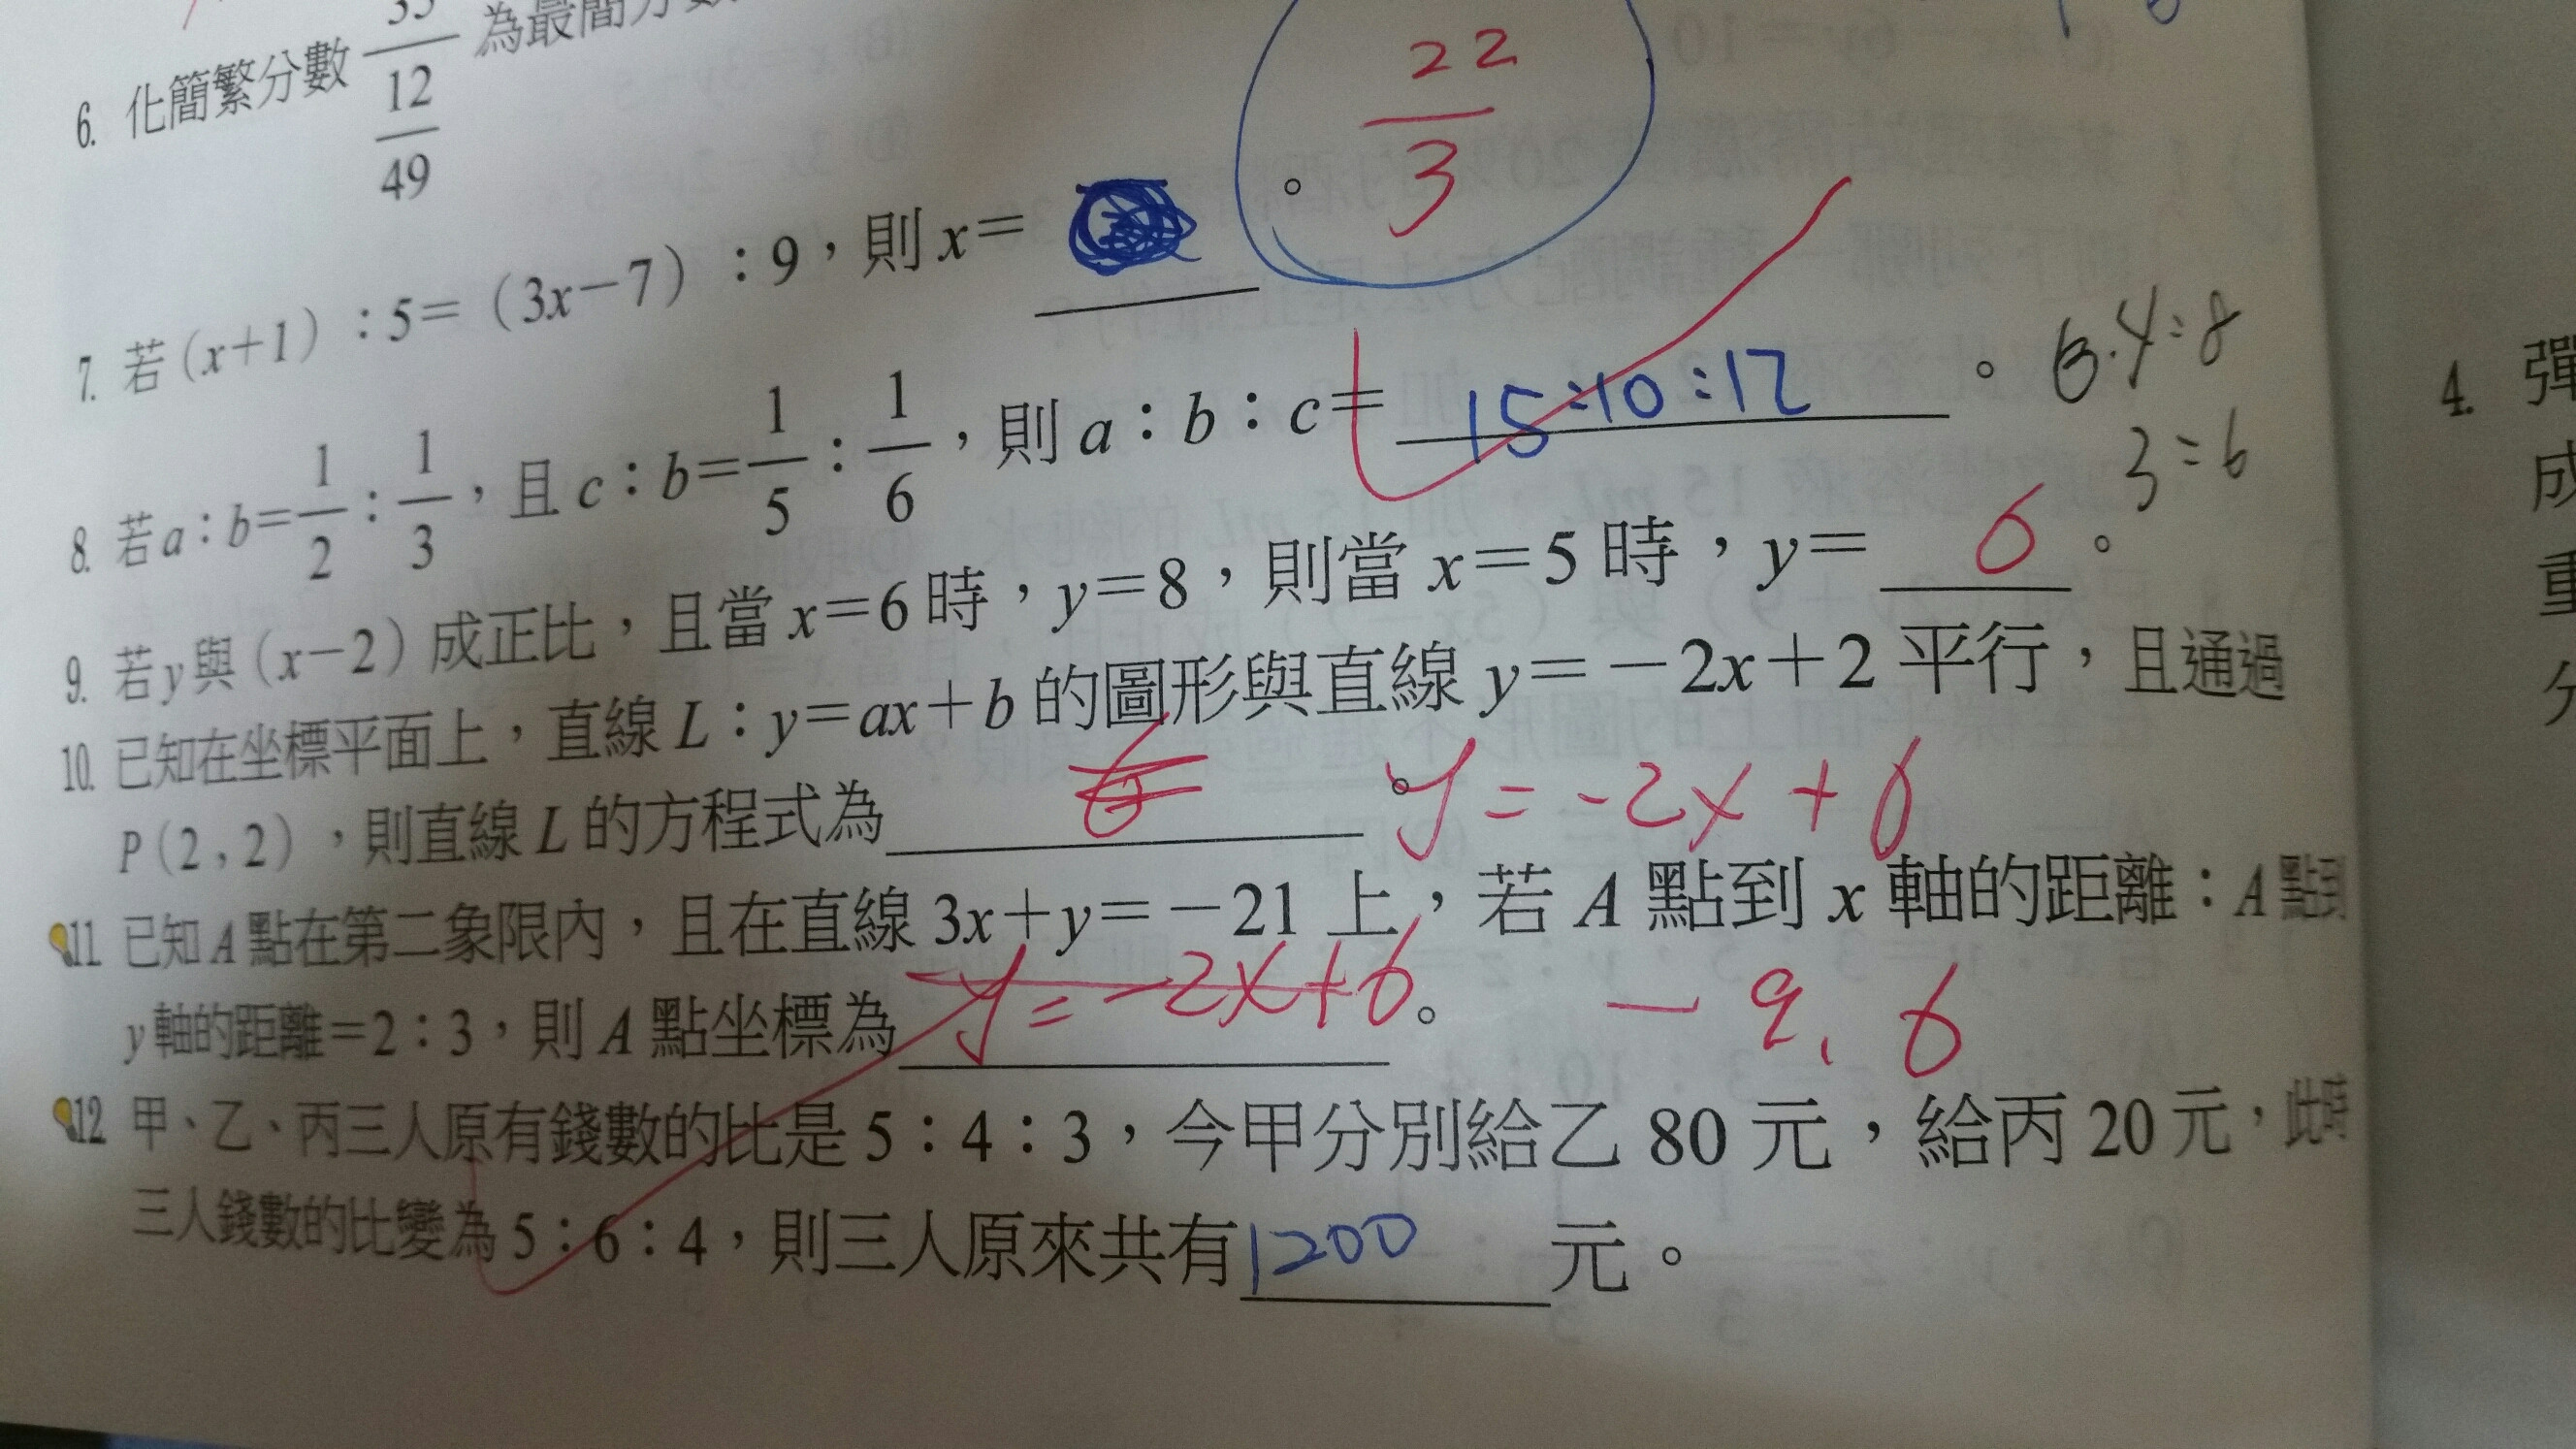 6. 化簡繁分數 35/(12/49) 為最簡分數
22/3
7. 若(x+1):5=(3x-7):9,則 x= 。
8. 若 a:b=1/2:1/3,且 c:b=1/5:1/6,則 a:b:c= 15:10:12 。
4=8
3=6
9. 若 y 與(x-2)成正比,且當 x=6 時,y=8,則當 x=5 時,y= 6 。
10. 已知在坐標平面上,直線 L:y=ax+b 的圖形與直線 y=-2x+2 平行,且通過
P(2,2),則直線 L 的方程式為 6 。 y=-2x+6
11. 已知 A 點在第二象限內,且在直線 3x+y=-21 上,若 A 點到 x 軸的距離:A 點到
y 軸的距離=2:3,則 A 點坐標為 y=-2x+6 。 -9, 6
12. 甲、乙、丙三人原有錢數的比是 5:4:3,今甲分別給乙 80 元,給丙 20 元,此時
三人錢數的比變為 5:6:4,則三人原來共有 1200 元。
4. 彈
成
重
分